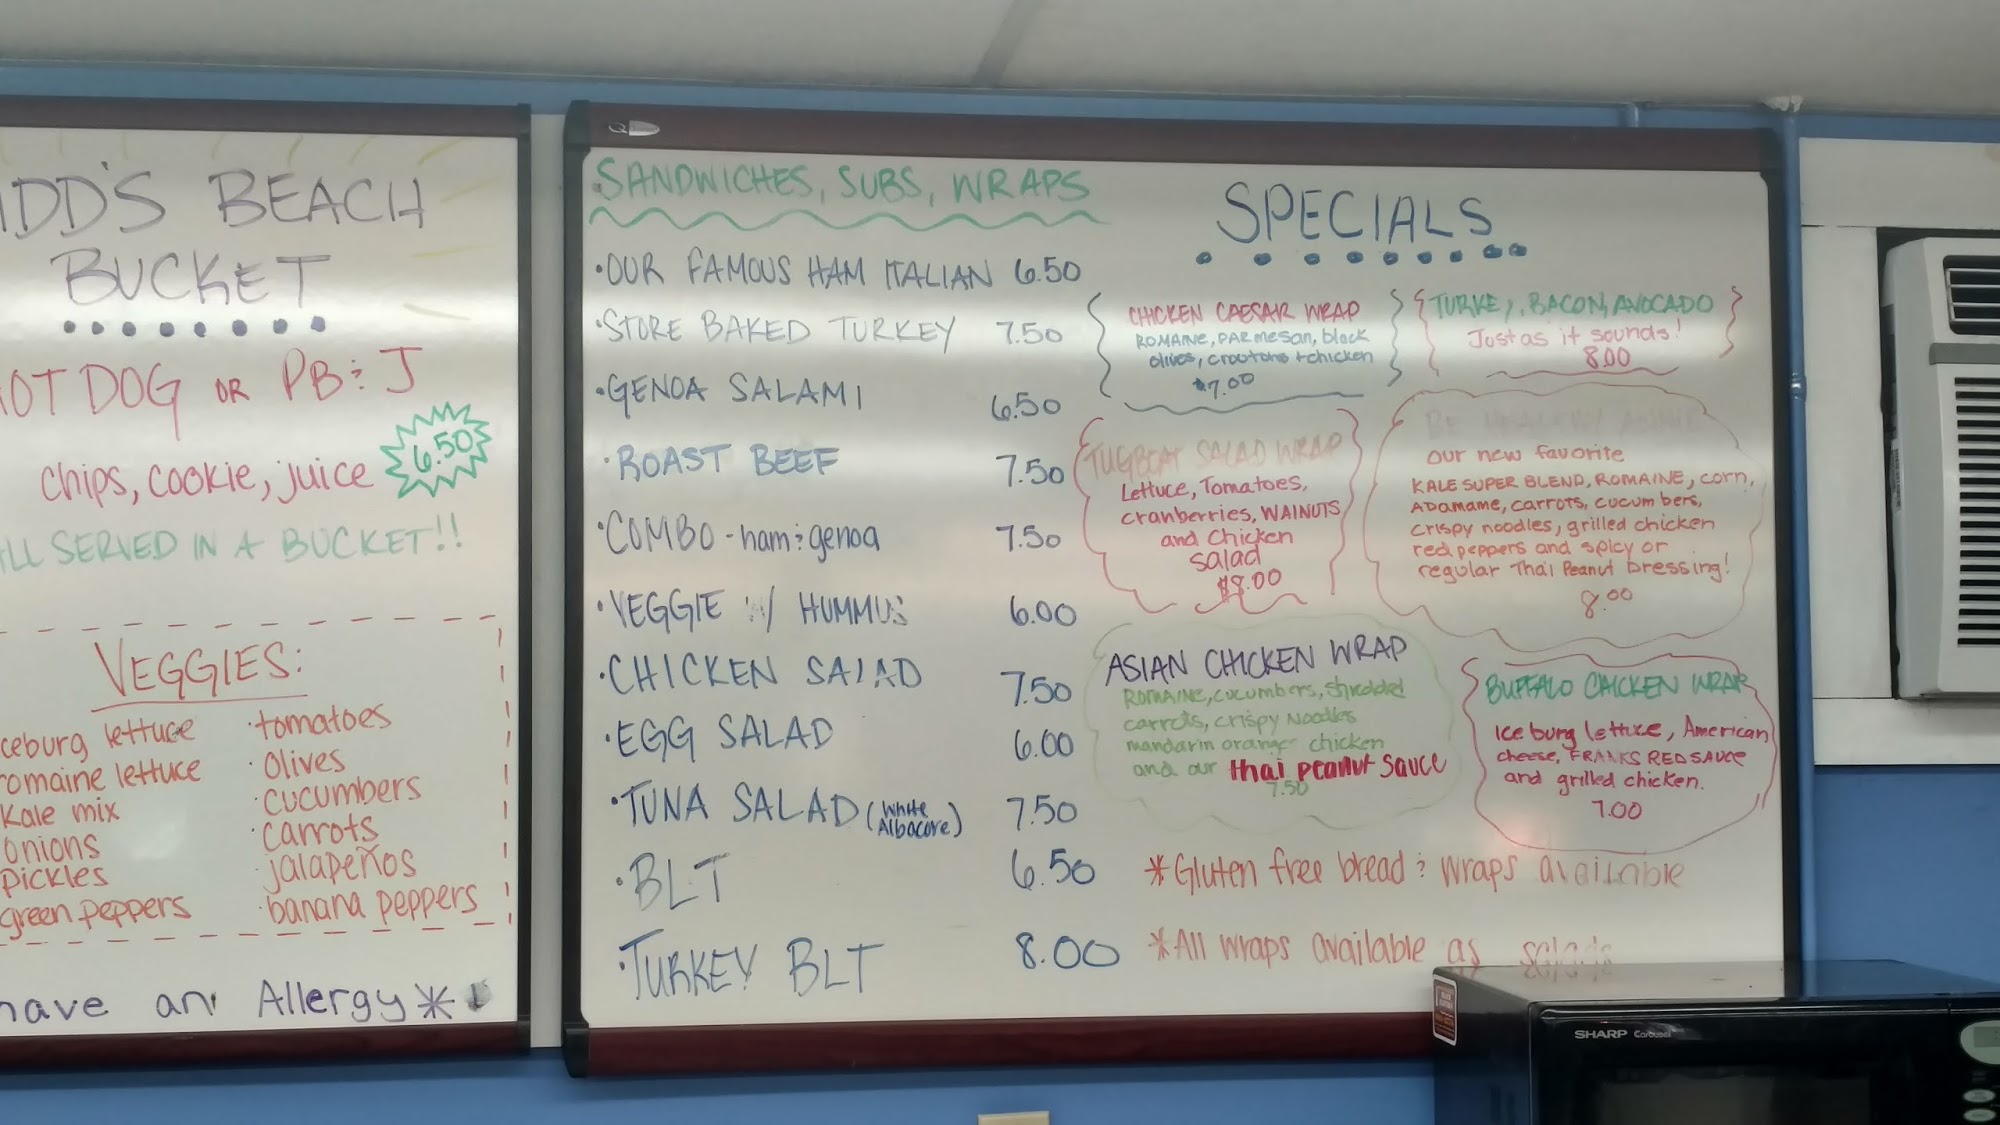 BEACH
BUCKET
HOT DOG OR PB & J
chips, cookie, juice 6.50
ALL SERVED IN A BUCKET!!
VEGGIES:
iceburg lettuce
romaine lettuce
Kale mix
onions
pickles
green peppers
tomatoes
olives
cucumbers
carrots
jalapeños
banana peppers
have an Allergy*
SANDWICHES, SUBS, WRAPS
OUR FAMOUS HAM ITALIAN 6.50
STORE BAKED TURKEY 7.50
GENOA SALAMI 6.50
ROAST BEEF 7.50
COMBO - ham & genoa 7.50
VEGGIE W/ HUMMUS 6.00
CHICKEN SALAD 7.50
EGG SALAD 6.00
TUNA SALAD (White Albacore) 7.50
BLT 6.50
TURKEY BLT 8.00
SPECIALS
CHICKEN CAESAR WRAP
ROMAINE, PARmesan, black
olives, croutons + chicken
$7.00
TURKEY, BACON, AVOCADO
Just as it sounds!
8.00
TUGBOAT SALAD WRAP
Lettuce, Tomatoes,
cranberries, WALNUTS
and Chicken
salad
$8.00
BE HEALTHY
our new favorite
KALE SUPER BLEND, ROMAINE, corn,
ADamame, carrots, cucumbers,
crispy noodles, grilled chicken
red peppers and spicy or
regular Thai Peanut Dressing!
8.00
ASIAN CHICKEN WRAP
ROMAINE, cucumbers, shredded
carrots, crispy Noodles
mandarin orange chicken
and our thai peanut sauce
7.50
BUFFALO CHICKEN WRAP
Ice burg lettuce, American
cheese, FRANKS RED SAUCE
and grilled chicken.
7.00
*Gluten free bread & wraps available
*All wraps available as salads
SHARP Carousel